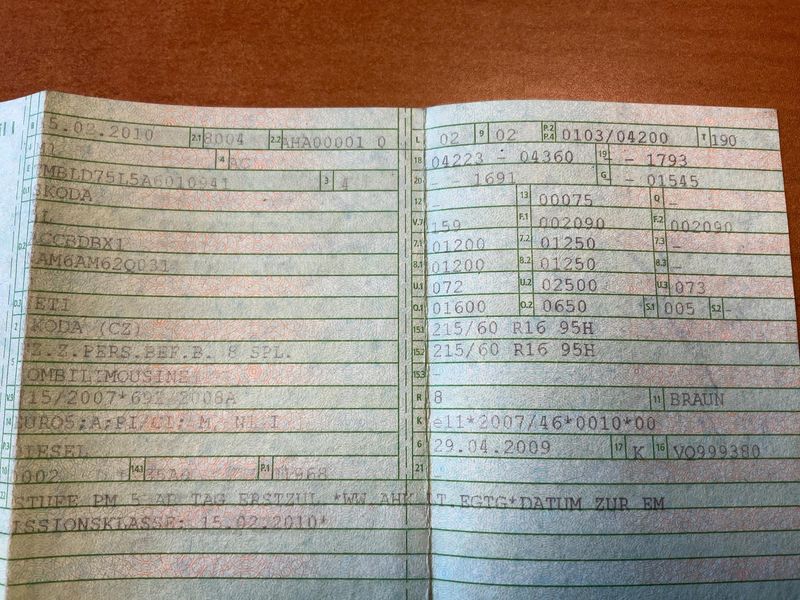 B 5.02.2010 2.1 8004 2.2 AHA00001 0
4 AC
E TMBLD75L5A6010941 3 4
SKODA
ACCBDBX1
AM6AM62Q031
YETI
SKODA (CZ)
FZ.Z.PERS.BEF.B. 8 SPL.
KOMBILIMOUSINE
V.9 715/2007*692/2008A
14 EURO5;A;PI/CI; M, N1 I
P.3 DIESEL
10 0002 14.1 35A0 P.1 01968
22 STUFE PM 5 AB TAG ERSTZUL.*WW.AHK LT.EGTG*DATUM ZUR EM
ISSIONSKLASSE: 15.02.2010*
L 02 9 02 P.2 P.4 0103/04200 T 190
18 04223 - 04360 19 - - 1793
20 - - 1691 G - 01545
12 - 13 00075 Q -
V.7 159 F.1 002090 F.2 002090
7.1 01200 7.2 01250 7.3 -
8.1 01200 8.2 01250 8.3 -
U.1 072 U.2 02500 U.3 073
O.1 01600 O.2 0650 S.1 005 S.2 -
15.1 215/60 R16 95H
15.2 215/60 R16 95H
15.3 -
R 8 11 BRAUN
K e11*2007/46*0010*00
6 29.04.2009 17 K 16 VQ999380
21